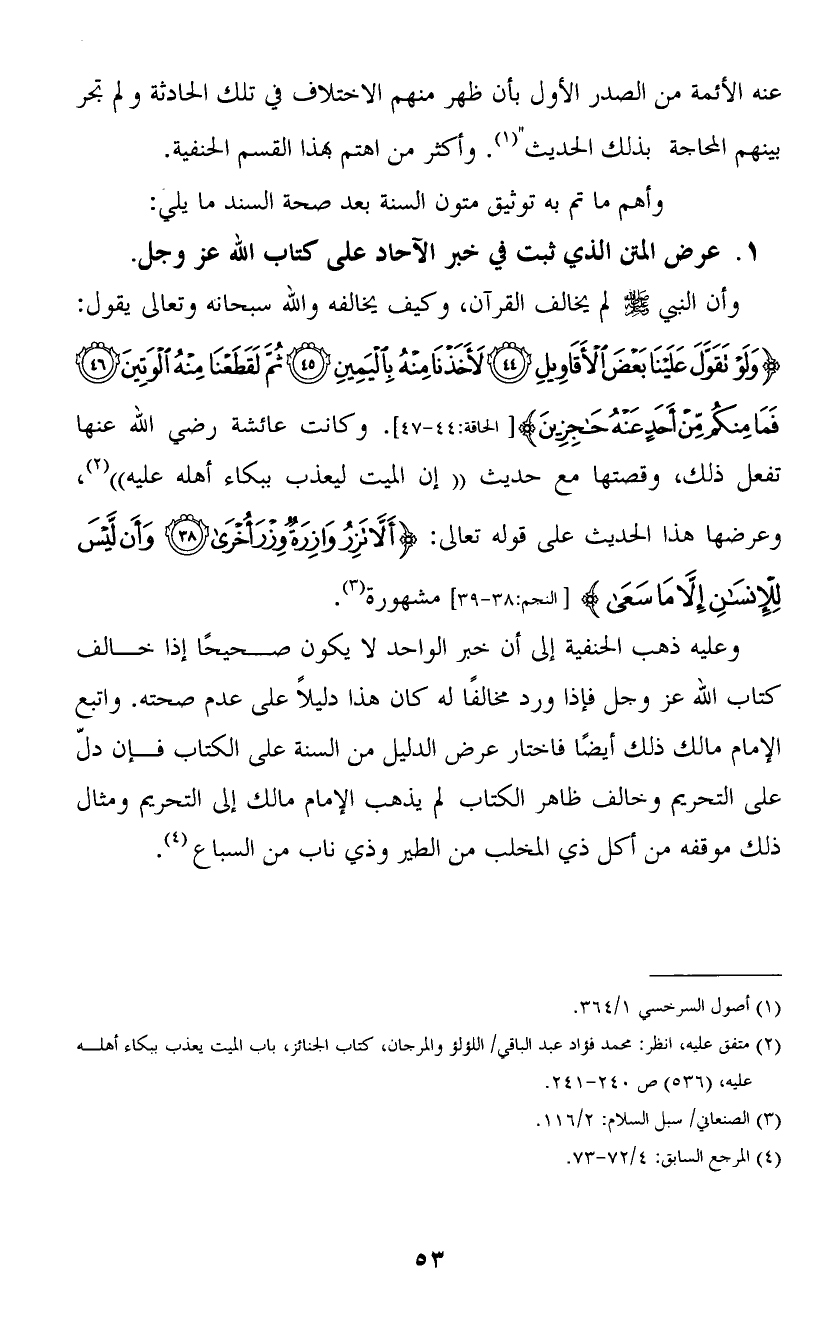 عنه الأئمة من الصدر الأول بأن ظهر منهم الاختلاف في تلك الحادثة و لم تجر
بينهم المحاجة بذلك الحديث"(١). وأكثر من اهتم بهذا القسم الحنفية.
وأهم ما تم به توثيق متون السنة بعد صحة السند ما يلي:
١. عرض المتن الذي ثبت في خبر الآحاد على كتاب الله عز وجل.
وأن النبي ﷺ لم يخالف القرآن، وكيف يخالفه والله سبحانه وتعالى يقول:
﴿وَلَوْ تَقَوَّلَ عَلَيْنَا بَعْضَ ٱلْأَقَاوِيلِ ٤٤ لَأَخَذْنَا مِنْهُ بِٱلْيَمِينِ ٤٥ ثُمَّ لَقَطَعْنَا مِنْهُ ٱلْوَتِينَ ٤٦
فَمَا مِنكُم مِّنْ أَحَدٍ عَنْهُ حَـٰجِزِينَ﴾ [الحاقة:٤٤-٤٧]. وكانت عائشة رضي الله عنها
تفعل ذلك، وقصتها مع حديث (( إن الميت ليعذب ببكاء أهله عليه))(٢)،
وعرضها هذا الحديث على قوله تعالى: ﴿أَلَّا تَزِرُ وَازِرَةٌ وِزْرَ أُخْرَىٰ ٣٨ وَأَن لَّيْسَ
لِلْإِنسَـٰنِ إِلَّا مَا سَعَىٰ﴾ [النجم:٣٨-٣٩] مشهورة(٣).
وعليه ذهب الحنفية إلى أن خبر الواحد لا يكون صـــحيحًا إذا خـــالف
كتاب الله عز وجل فإذا ورد مخالفًا له كان هذا دليلاً على عدم صحته. واتبع
الإمام مالك ذلك أيضًا فاختار عرض الدليل من السنة على الكتاب فـــإن دلّ
على التحريم وخالف ظاهر الكتاب لم يذهب الإمام مالك إلى التحريم ومثال
ذلك موقفه من أكل ذي المخلب من الطير وذي ناب من السباع(٤).
(١) أصول السرخسي ٣٦٤/١.
(٢) متفق عليه، انظر: محمد فؤاد عبد الباقي/ اللؤلؤ والمرجان، كتاب الجنائز، باب الميت يعذب ببكاء أهلـــه
عليه، (٥٣٦) ص ٢٤٠-٢٤١.
(٣) الصنعاني/ سبل السلام: ١١٦/٢.
(٤) المرجع السابق: ٧٢/٤-٧٣.
٥٣